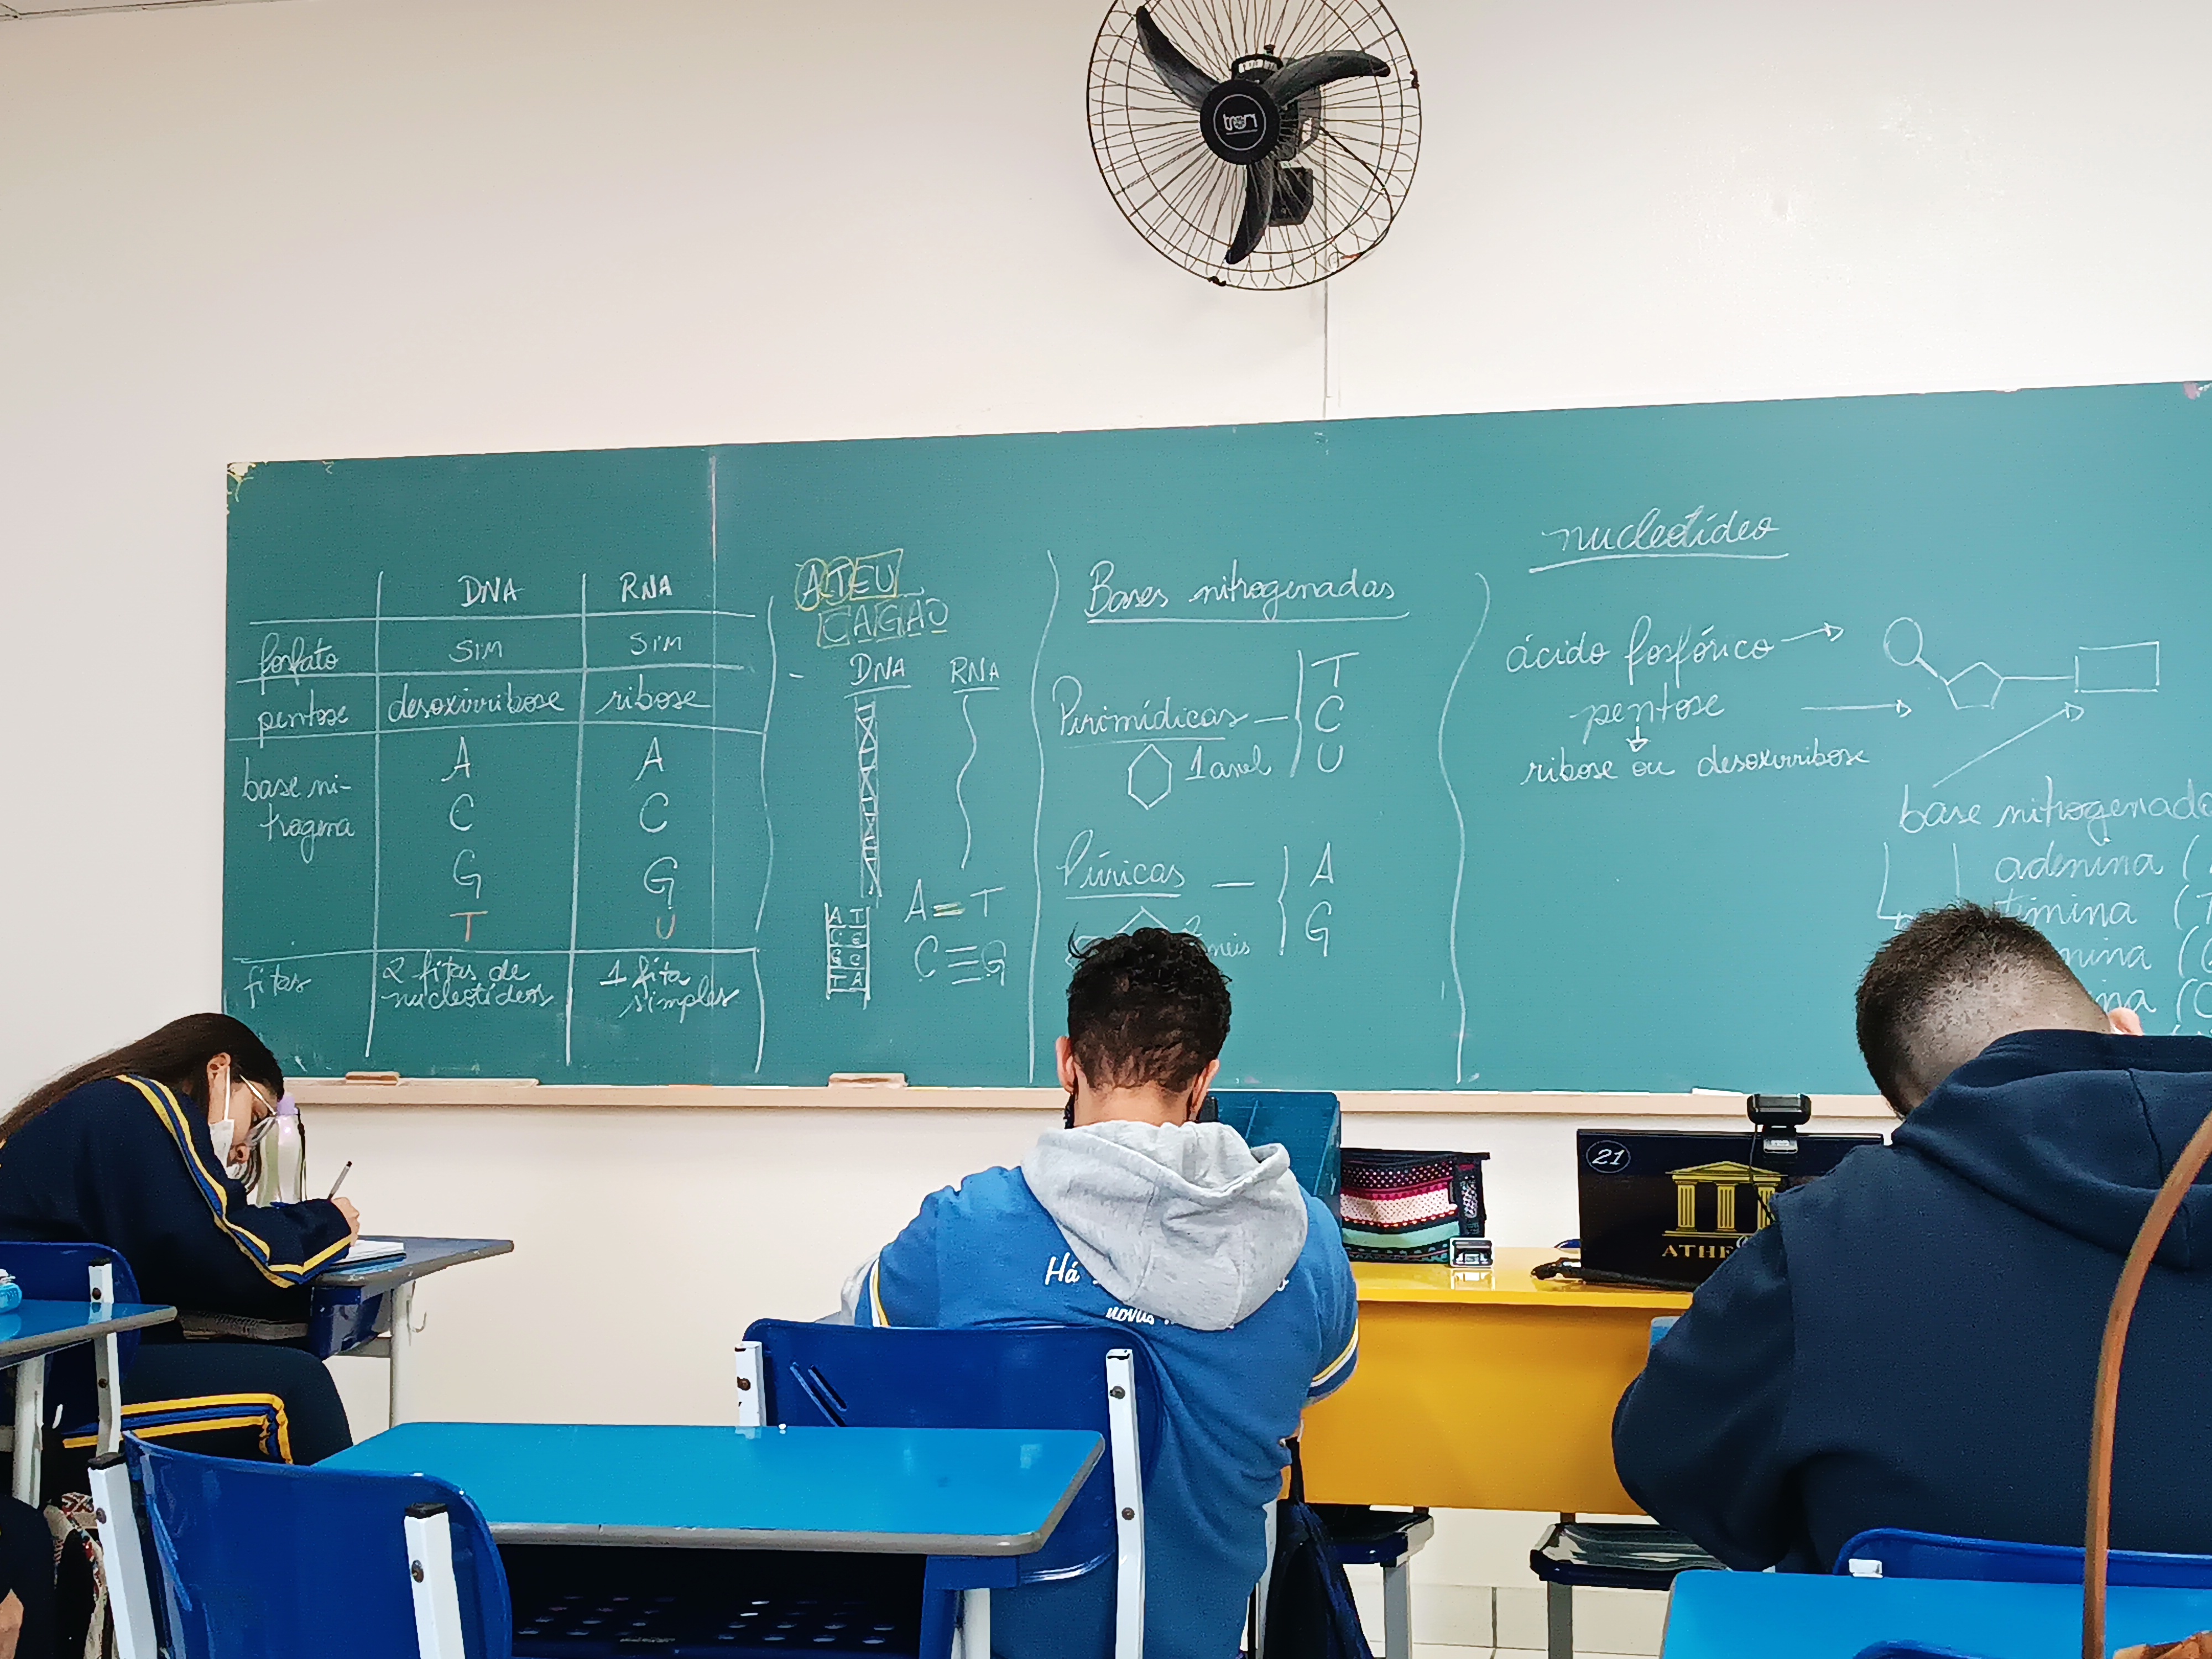 tron
DNA RNA
fosfato SIM SIM
pentose desoxirribose ribose
base ni-
trogena
A A
C C
G G
T U
fitas 2 fitas de nucleotídeos 1 fita simples
ATEU
CAGAO
- DNA RNA
A = T
C ≡ G
A T
C G
G C
T A
Bases nitrogenadas
Pirimídicas — T
C
1 anel U
Púricas — A
G
2
nucleotídeo
ácido fosfórico
pentose
ribose ou desoxirribose
base nitrogenada
adenina (
timina (T
nina (
na (C
21
ATHE
Há
novos